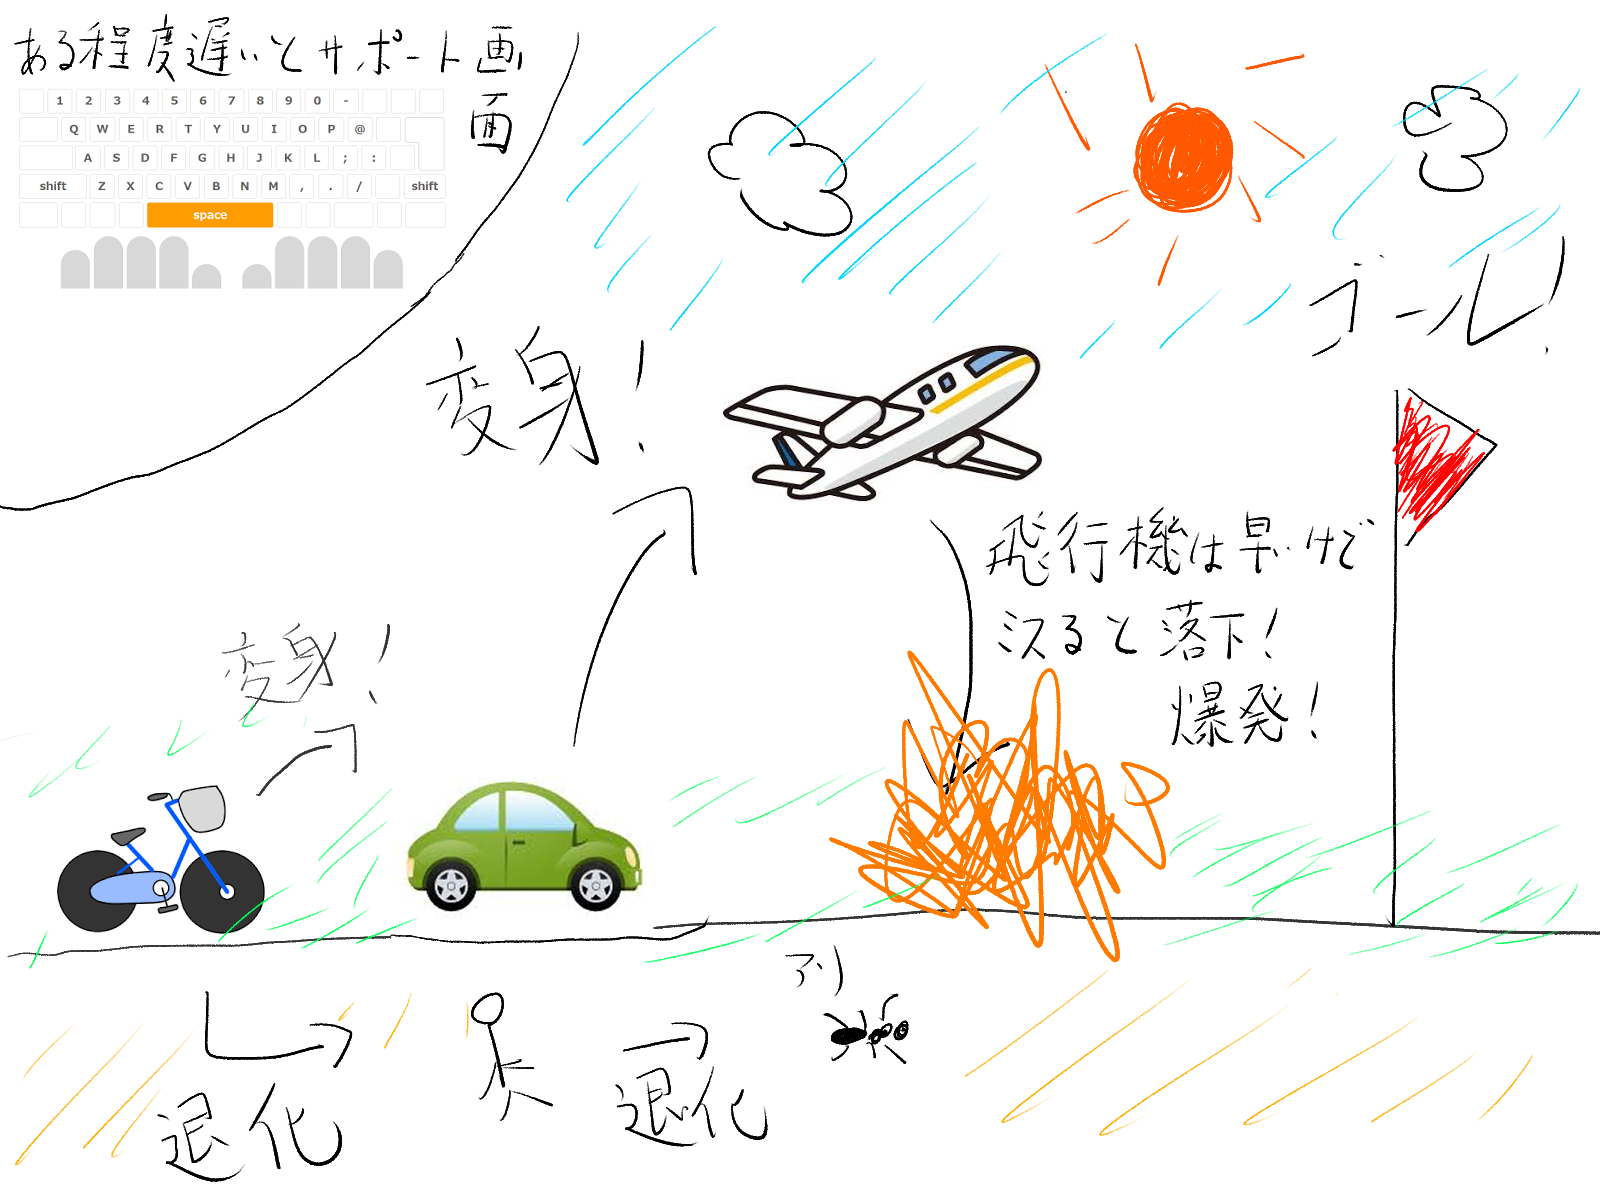 ある程度遅いとサポート画
面
1 2 3 4 5 6 7 8 9 0 -
Q W E R T Y U I O P @
A S D F G H J K L ; :
shift Z X C V B N M , . / shift
space
ゴール!
変身!
飛行機は早いけど
ミスると落下!
爆発!
変身!
アリ
退化
退化